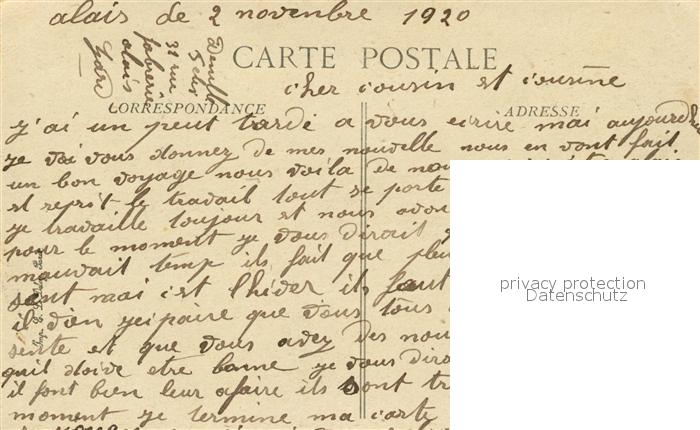 alais de 2 novembre 1920
5
31 rue
fabrerie
alais
Gard
CARTE POSTALE
cher cousin et cousine
CORRESPONDANCE
ADRESSE
j'ai un peut tardé a vous ecrire mai aujourdh
je vai vous donnez de mes nouvelle nous en vont fait
un bon voyage nous voila de nou
et reprit le travail tout se porte
je travaille toujour et nous avon
pour le moment je vous dirait
mauvait temp ils fait que pleu
sent mai c'est lhiver ils faut
il vien jeipaire que vous tous
sente et que vous avez des nou
quil doive etre bonne je vous dira
il font bien leur afaire ils sont tr
moment je termine ma carte
privacy protection
Datenschutz